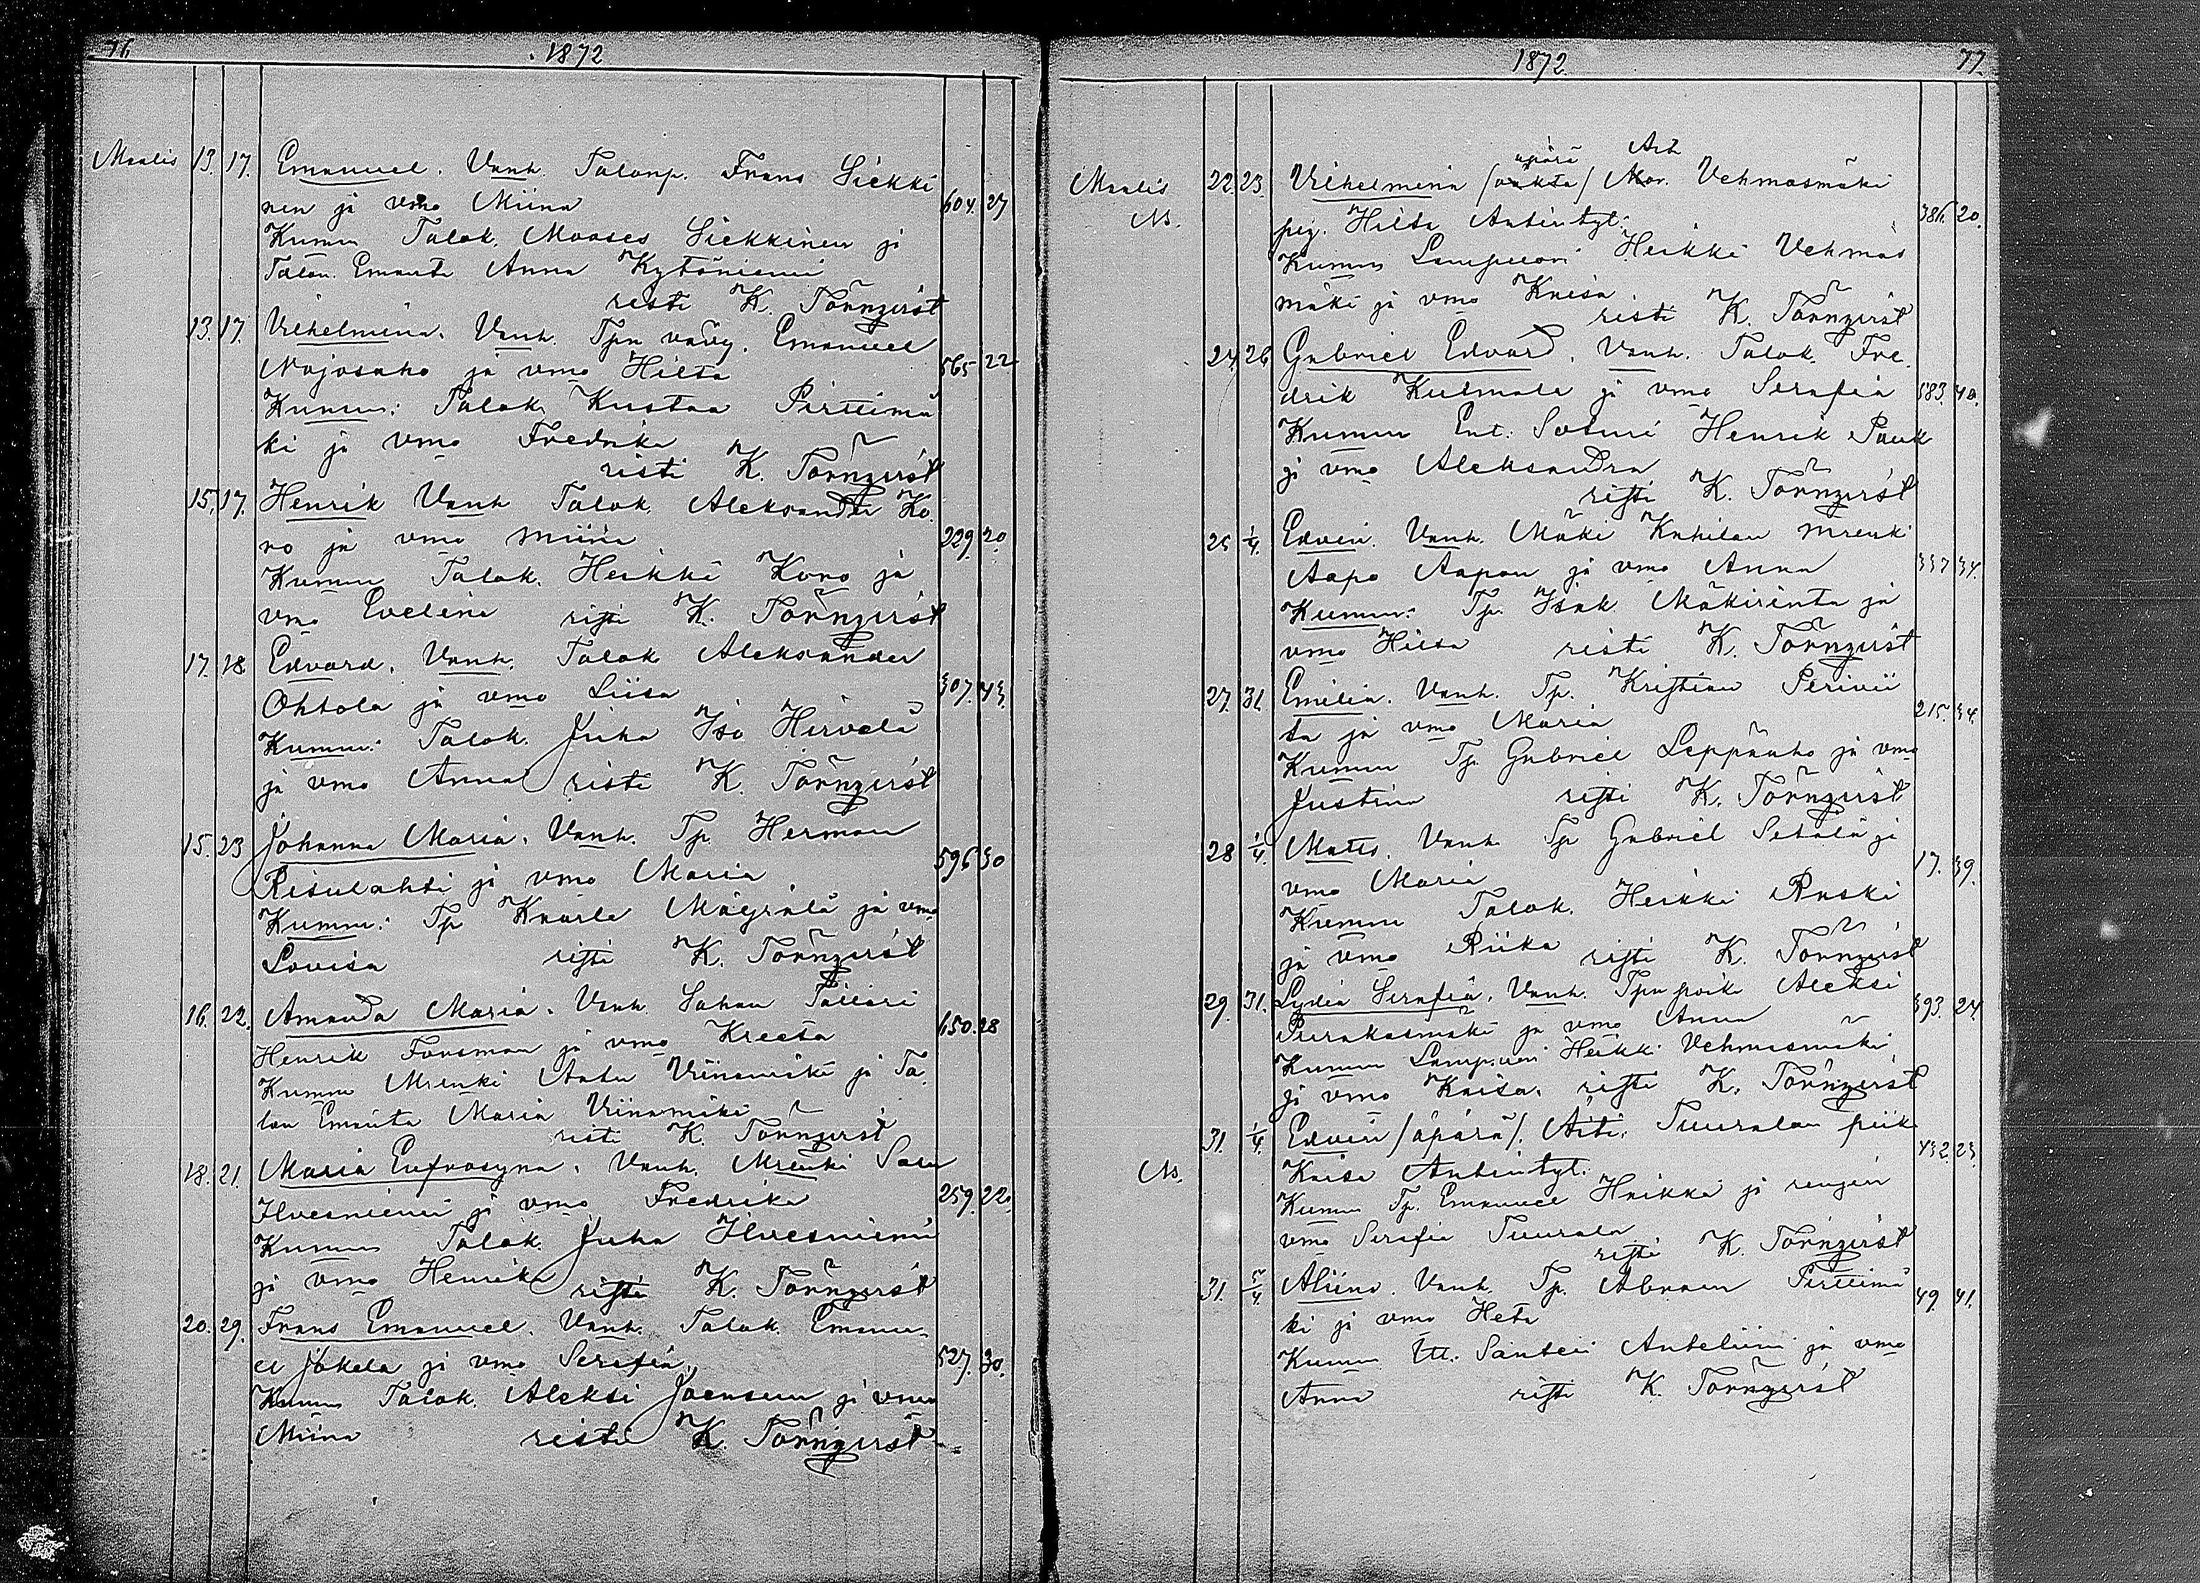 76 1872
Maalis 13. 17. Emanuel. Vanh. Talonp. Frans Siekki
nen ja vmo Miina 604. 27
Kumm Talok. Mooses Siekkinen ja
Talon Emäntä Anna Kytöniemi
risti K. Törnqvist
13. 17. Vilhelmina. Vanh. Tpn vävy. Emanuel
Nojosaho ja vmo Hilta 565 22
Kumm: Talok. Kustaa Perttimä
ki ja vmo Fredrika
risti K. Törnqvist
15. 17. Henrik Vanh Talok. Aleksander Ko
ro ja vmo Miina 229. 20.
Kumm Talok. Heikki Koro ja
vmo Evelina risti K. Törnqvist
17. 18 Edvard. Vanh. Talok Aleksander
Ohtola ja vmo Liisa 307. 43.
Kumm: Talok. Juha Iso Hirvelä
ja vmo Anna risti K. Törnqvist
15. 23 Johanna Maria. Vanh. Tp. Herman
Risulahti ja vmo Maria 596 30
Kumm: Tp Kaarle Mäyrälä ja vmo
Lovisa risti K. Törnqvist
16. 22. Amanda Maria. Vanh. Sahan
Henrik Forsman ja vmo Kreeta 650. 28
Kumm Mrenki Antu Viinamäki ja Ta
lon Emäntä Maria Viinamäki
risti K. Törnqvist
18. 21. Maria Eufrosyna. Vanh. Mrenki
Ilvesniemi ja vmo Fredrika 259. 22.
Kumm Talok. Juha Ilvesniemi
ja vmo Henrika risti K. Törnqvist
20. 29. Frans Emanuel. Vanh. Talok. Emanu-
el Jokela ja vmo Serafia. 527. 30.
Kumm Talok. Aleksi Joensuu ja vmo
Miina risti K. Törnqvist
1872 77.
äpärä Äiti
Maalis 22. 23. Vilhelmina Vehmasmäki
N. pij. Hilda Antintyt. 386. 20.
Kumm Lampuori Heikki Vehmas
mäki ja vmo Kaisa.
risti K. Törnqvist
24. 26 Gabriel Edvard. Vanh. Talok. Fre.
drik Kulmala ja vmo Serafia 583. 40.
Kumm Ent. Soturi Henrik Pauk
ja vmo Aleksandra
risti K. Törnqvist
25 1/4. Edvin. Vanh. Mäki Kahilan Mrenki
Aapo Aapon ja vmo Anna 337 34.
Kumm: Tp. Isak Mäkirinta ja
vmo Hilda risti K. Törnqvist
27. 31. Emilia. Vanh. Tp. Kristian Perivii
ta ja vmo Maria 215. 34.
Kumm Tp. Gabriel Leppäaho ja vmo
Justina risti K. Törnqvist
28 1/4. Matts. Vanh. Tp Gabriel Setälä ja
vmo Maria 17. 39.
Kumm Talok. Heikki Raski
ja vmo Riika risti K. Törnqvist
29. 31. Lydia Serafia. Vanh. Tpn poika Aleksi
Purakasmäki ja vmo Anna 393. 24
Kumm Lampuori Heikki Vehmasmäki
ja vmo Kaisa. risti K. Törnqvist
31. 1/4. Edvin /äpärä/. Äiti. Tuuralan piik
N. Kaisa Antintyt. 432. 23.
Kumm Tp. Emanuel Haikka ja rengin
vmo Serafia Tuurala
risti K. Törnqvist
31. 5/4. Aliina. Vanh. Tp. Abram Perttimä
ki ja vmo Heta 49. 41.
Kumm Itl. Santeri Antelini ja vmo
Anna risti K. Törnqvist